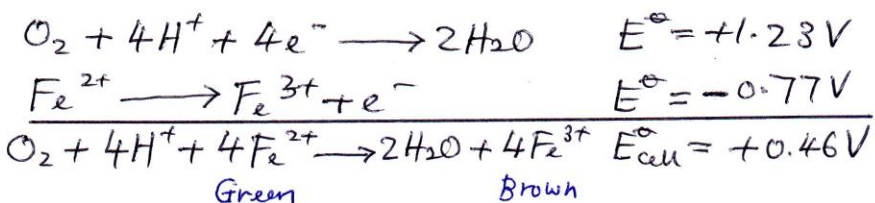 O₂ + 4H⁺ + 4e⁻ ⟶ 2H₂O E^⦵ = +1.23V
Fe²⁺ ⟶ Fe³⁺ + e⁻ E^⦵ = -0.77V
O₂ + 4H⁺ + 4Fe²⁺ ⟶ 2H₂O + 4Fe³⁺ E^⦵cell = +0.46V
Green Brown